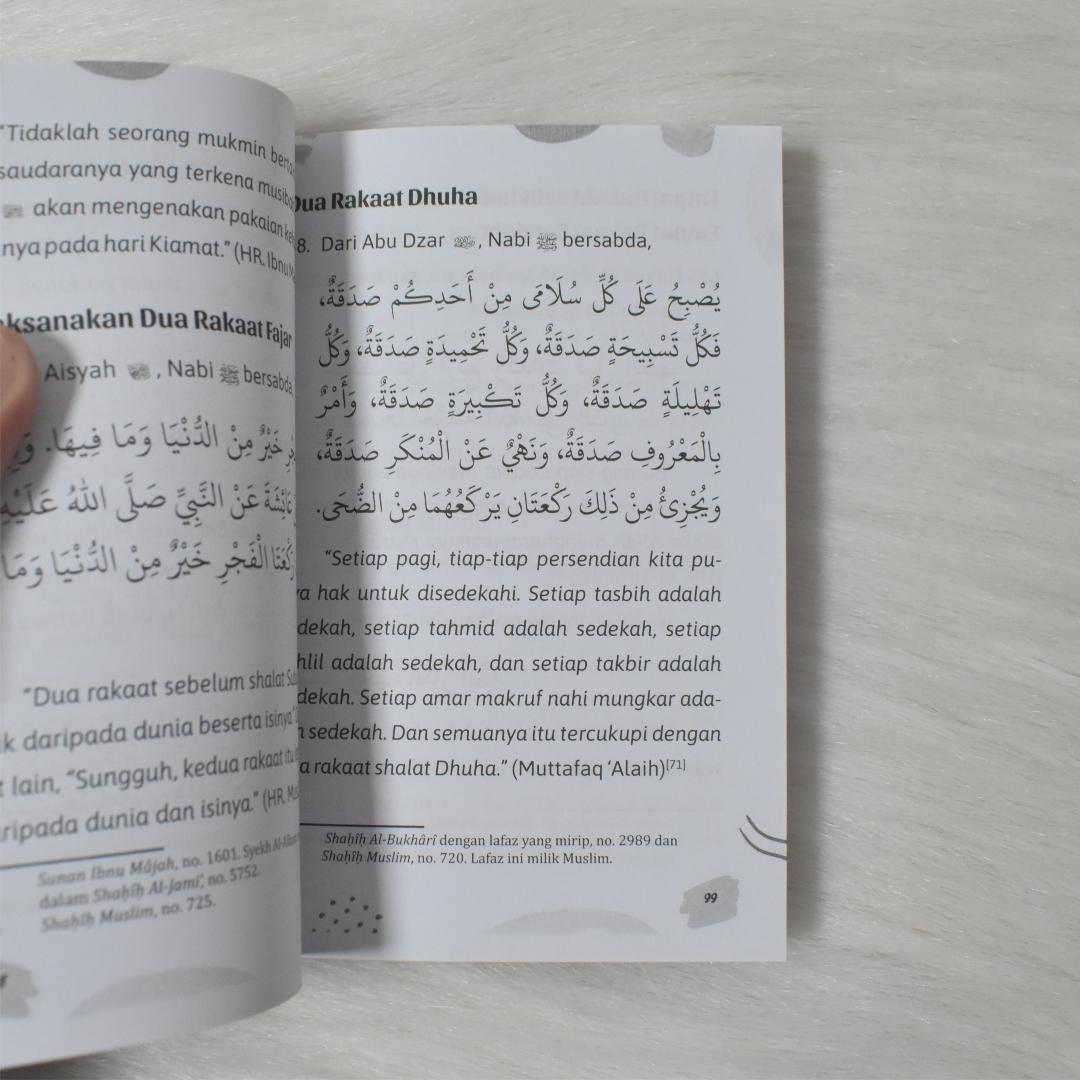 "Tidaklah seorang mukmin
saudaranya yang terkena
ﷺ akan mengenakan pakaian
nya pada hari Kiamat." (HR. Ibnu
aksanakan Dua Rakaat Fajar
Aisyah, Nabi ﷺ bersabda,
خَيْرٌ مِنْ الدُّنْيَا وَمَا فِيهَا.
عَائِشَةَ عَنْ النَّبِيِّ صَلَّى اللَّهُ عَلَيْهِ
رَكْعَتَا الْفَجْرِ خَيْرٌ مِنْ الدُّنْيَا وَمَا
"Dua rakaat sebelum shalat
ik daripada dunia beserta isinya"
t lain, "Sungguh, kedua rakaat itu
aripada dunia dan isinya." (HR.
Sunan Ibnu Mâjah, no. 1601. Syekh
dalam Shaḥîḥ Al-Jami', no. 5752.
Shaḥîḥ Muslim, no. 725.
Dua Rakaat Dhuha
8. Dari Abu Dzar, Nabi ﷺ bersabda,
يُصْبِحُ عَلَى كُلِّ سُلَامَى مِنْ أَحَدِكُمْ صَدَقَةٌ،
فَكُلُّ تَسْبِيحَةٍ صَدَقَةٌ، وَكُلُّ تَحْمِيدَةٍ صَدَقَةٌ، وَكُلُّ
تَهْلِيلَةٍ صَدَقَةٌ، وَكُلُّ تَكْبِيرَةٍ صَدَقَةٌ، وَأَمْرٌ
بِالْمَعْرُوفِ صَدَقَةٌ، وَنَهْيٌ عَنْ الْمُنْكَرِ صَدَقَةٌ،
وَيُجْزِئُ مِنْ ذَلِكَ رَكْعَتَانِ يَرْكَعُهُمَا مِنْ الضُّحَى.
"Setiap pagi, tiap-tiap persendian kita pu-
ya hak untuk disedekahi. Setiap tasbih adalah
dekah, setiap tahmid adalah sedekah, setiap
hlil adalah sedekah, dan setiap takbir adalah
dekah. Setiap amar makruf nahi mungkar ada-
h sedekah. Dan semuanya itu tercukupi dengan
a rakaat shalat Dhuha." (Muttafaq 'Alaih)[71]
Shaḥîḥ Al-Bukhârî dengan lafaz yang mirip, no. 2989 dan
Shaḥîḥ Muslim, no. 720. Lafaz ini milik Muslim.
99